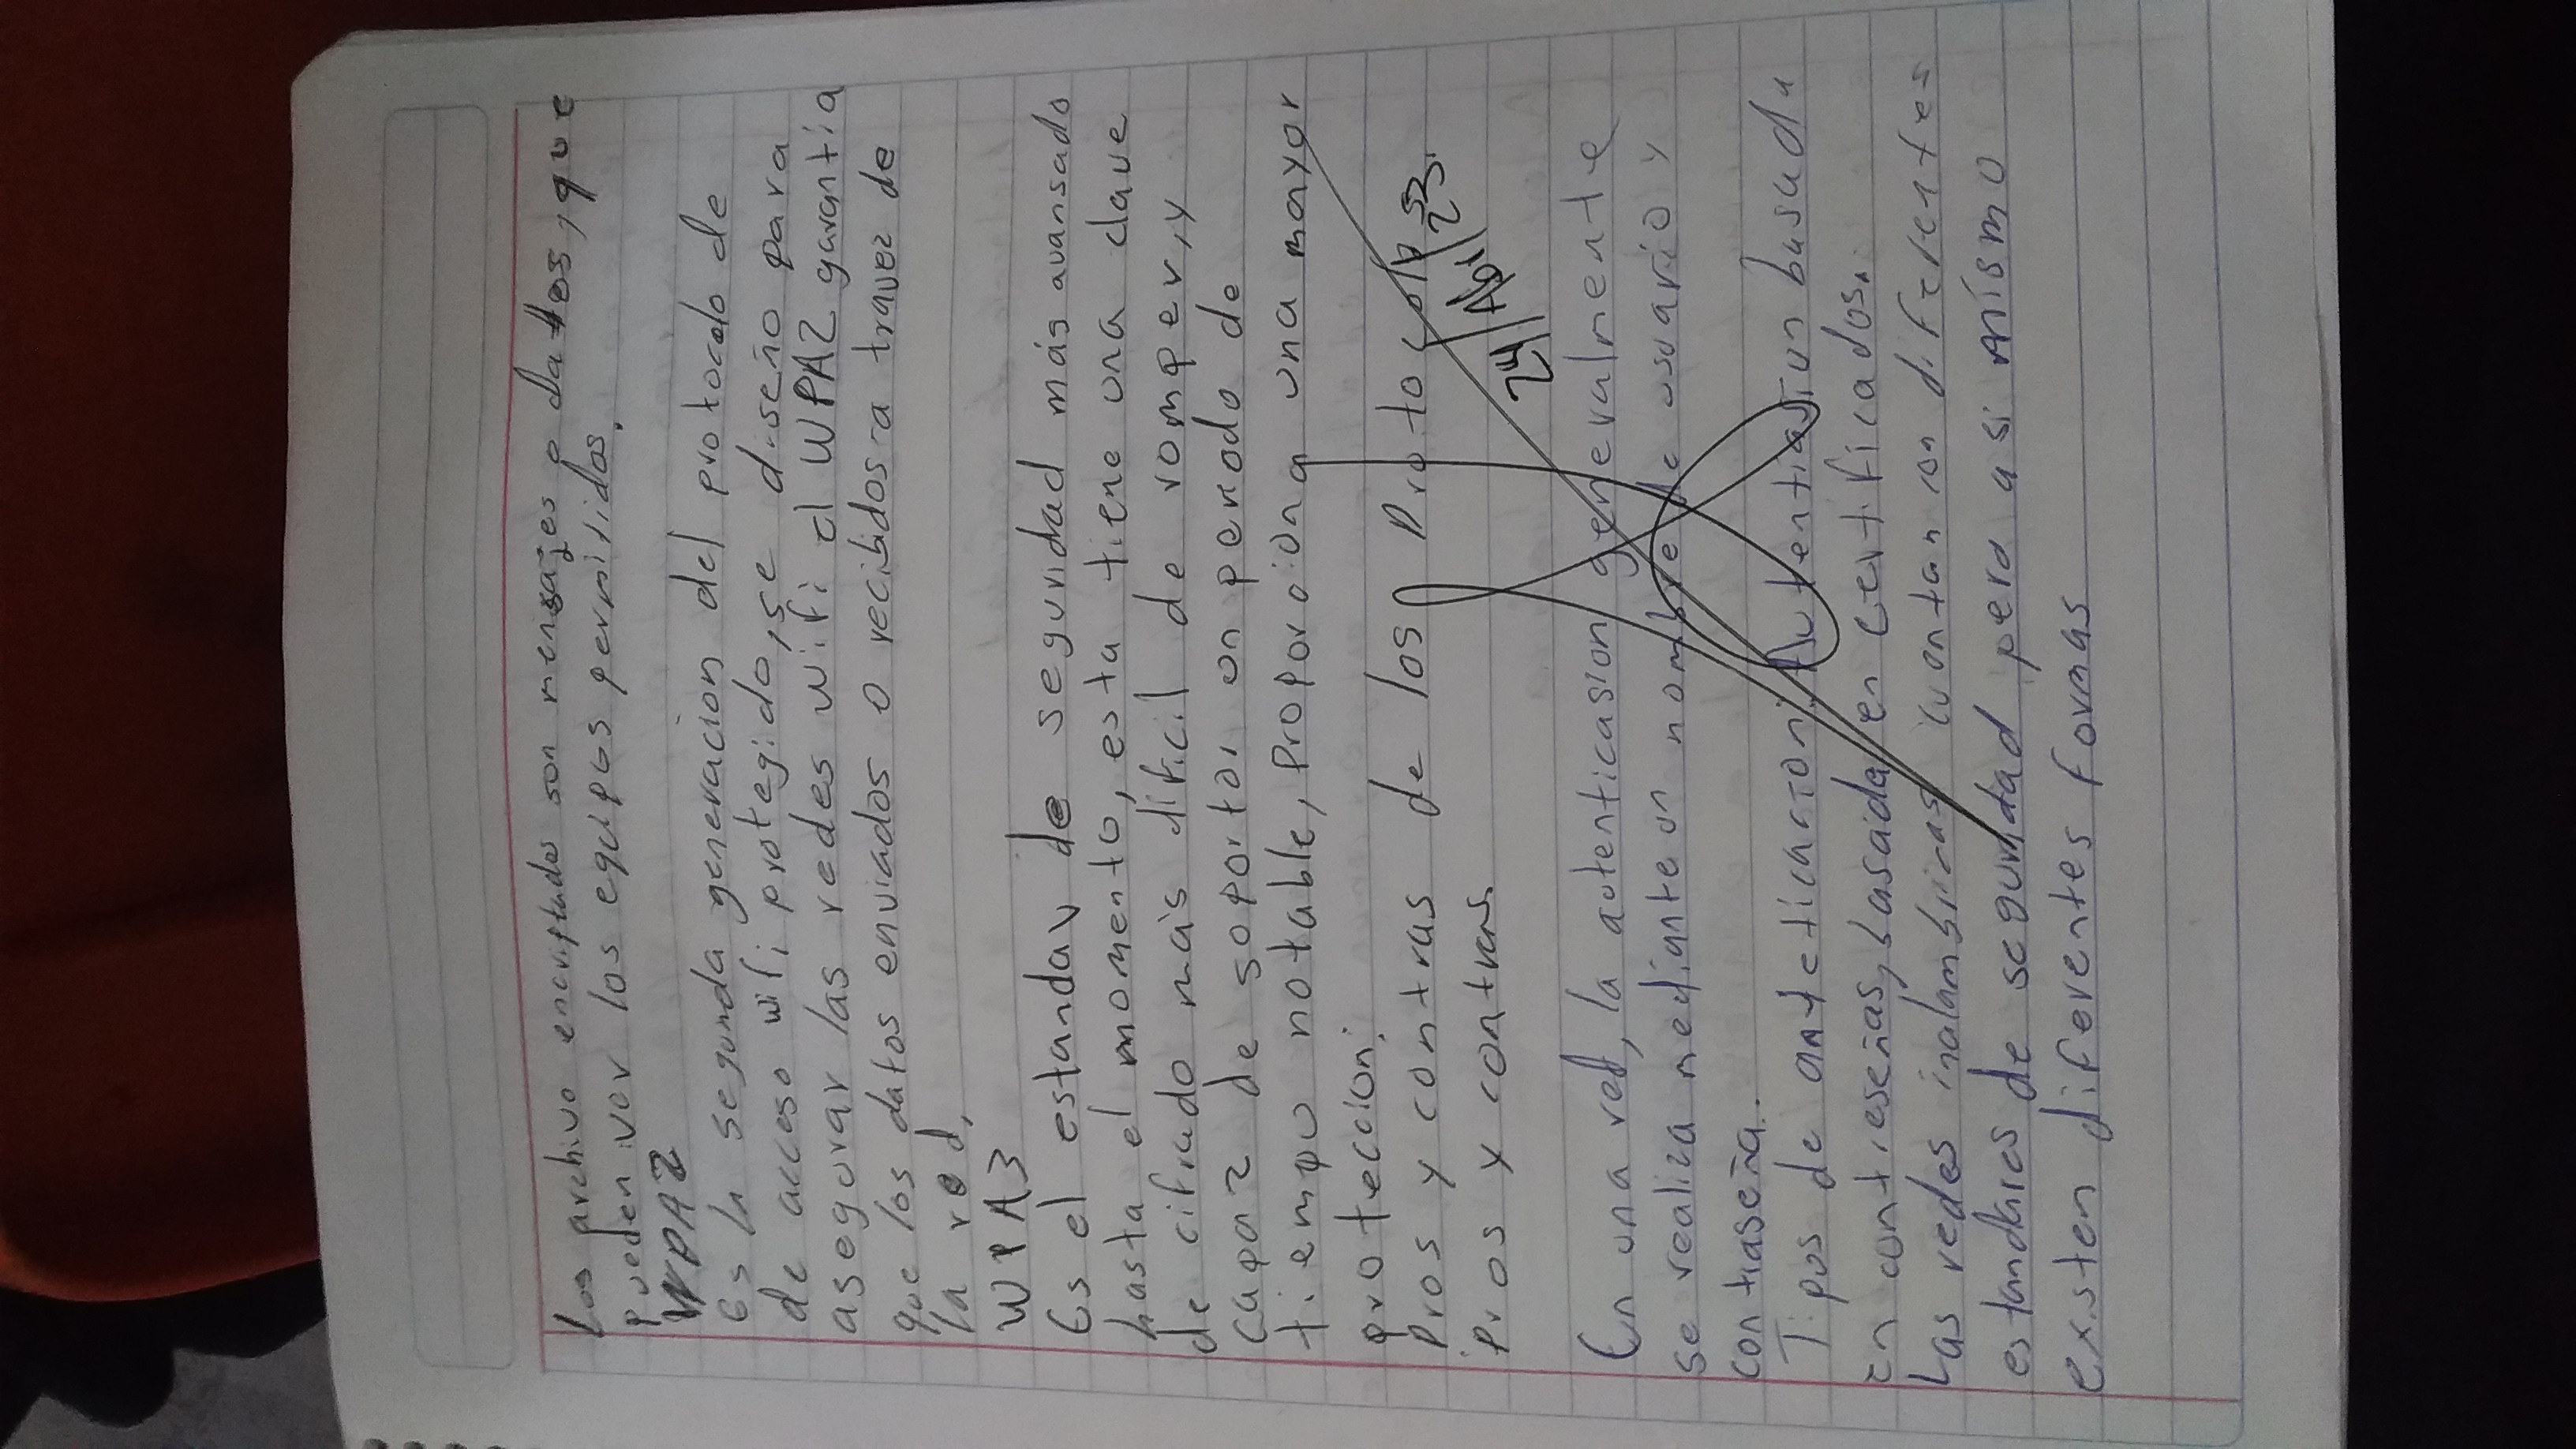 Los archivo encriptados son mensajes o datos, que
pueden ver los equipos permitidos.
WPA2
Es la segunda generacion del protocolo de
de acceso wifi protegido, se diseño para
asegurar las redes wifi el WPA2 garantia
que los datos enviados o recibidos a travez de
la red,
WPA3
Es el estandar de seguridad más avansado
hasta el momento, esta tiene una clave
de cifrado más dificil de romper, y
capaz de soportar un periodo de
tiempo notable, proporciona una mayor
proteccion.
Pros y contras de los Protocolos
24/Abr/23.
Pros y contras
En una red, la autenticasion generalmente
se realiza mediante un nombre de usuario y
contraseña.
Tipos de anteticacion: Autenticasion basada
en contreseñas, basada en certificados.
Las redes inalambricas cuentan con diferentes
estandares de seguridad pero asi mísmo
existen diferentes formas